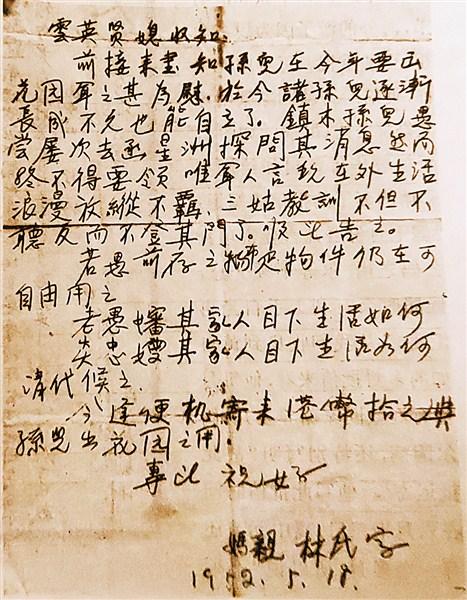 雲英賢媳收知
前接来書知孫兒在今年要出
花园闻之甚為慰.於今諸孫兒逐漸
長成不久也能自立了.鎮木孫兒愚
嘗屢次去函星洲探問其消息然而
終不得要領唯闻人言彼在外生活
浪漫放縱不羈.三姑教訓不但不
聽反而不登其門了.順此告之。
若愚前存之物件仍在可
自由用之
老愚嬸其家人目下生活如何
尖忠嫂其家人目下生活如何
請代候之
今逢便机寄来港幣拾之與
孫兒出花园之用.
專此 祝好
媽親 林氏字
1952.5.18.